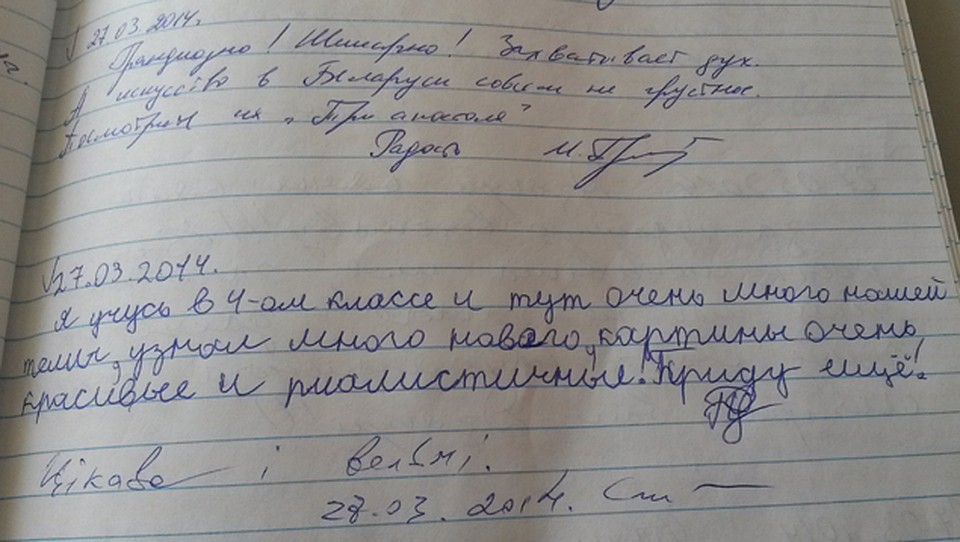 27.03.2014.
Грандиозно! Шикарно! Захватывает дух.
А искусство в Беларуси совсем не грустное.
Посмотрим на „Три апостола"
М.
27.03.2014.
Я учусь в 4-ом классе и тут очень много нашей
темы, узнал много нового, картины очень
красивые и риалистичные! Приду ещё!
Цікава і вельмі.
28.03.2014.